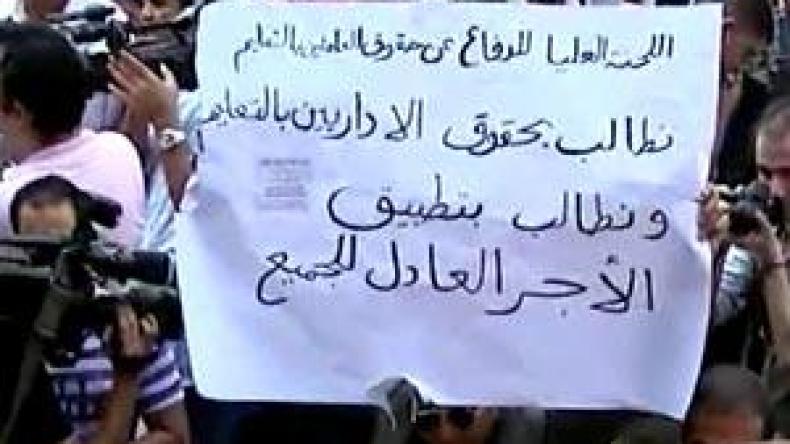 اللجنة العليا للدفاع عن حقوق العاملين بالتعليم
نطالب بحقوق الاداريين بالتعليم
ونطالب بتطبيق
الأجر العادل للجميع